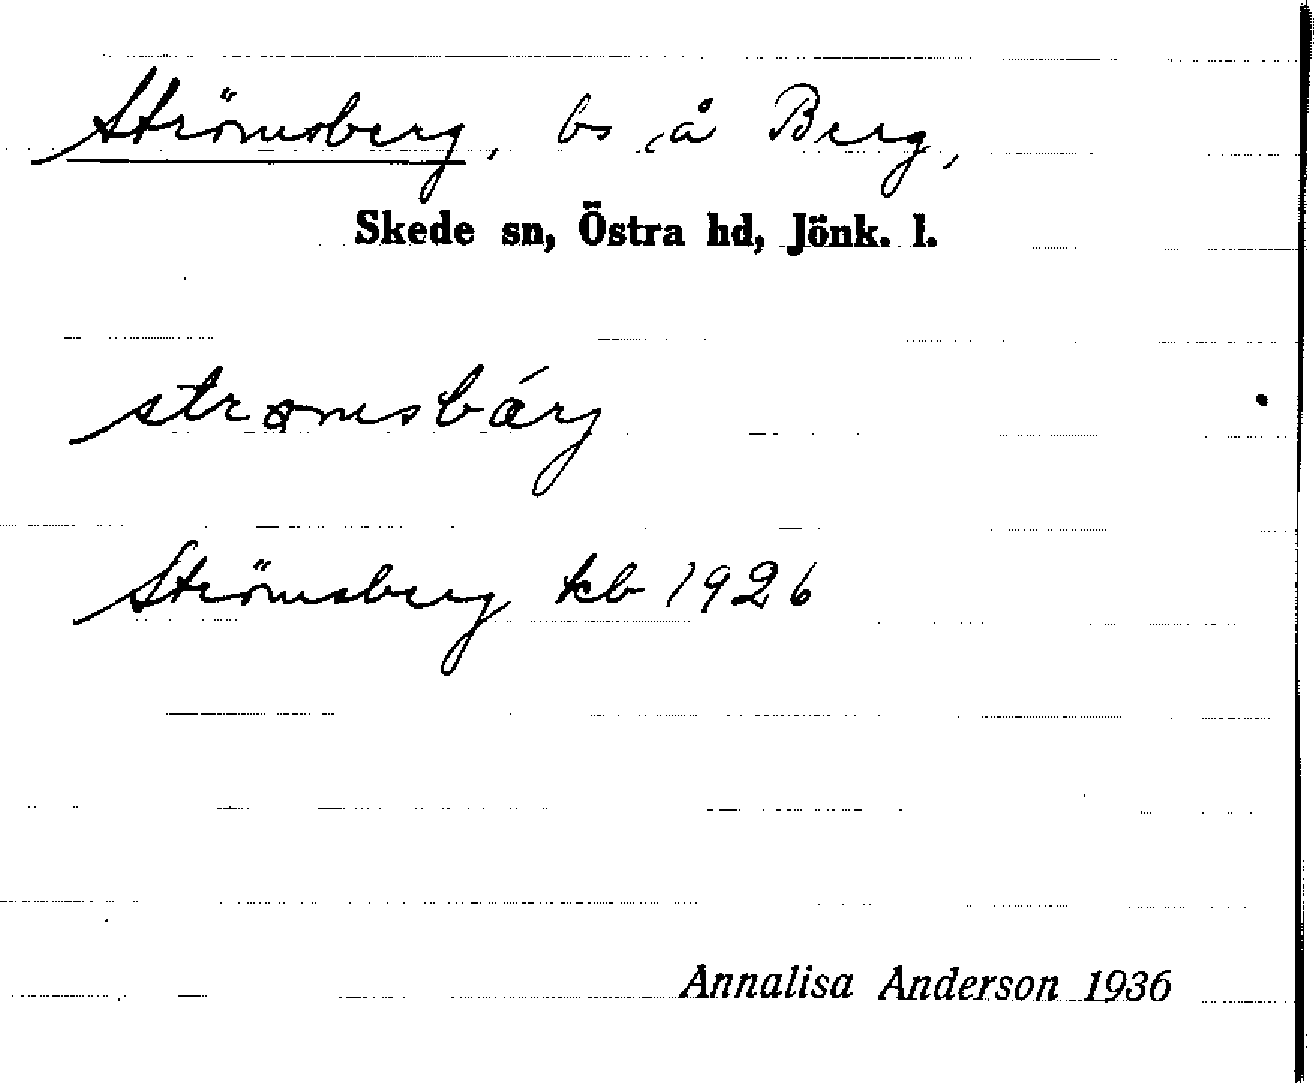 Strömsberg, bs å Berg,
Skede sn, Östra hd, Jönk. l.
strømsbárj
Strömsberg kb 1926
Annalisa Anderson 1936